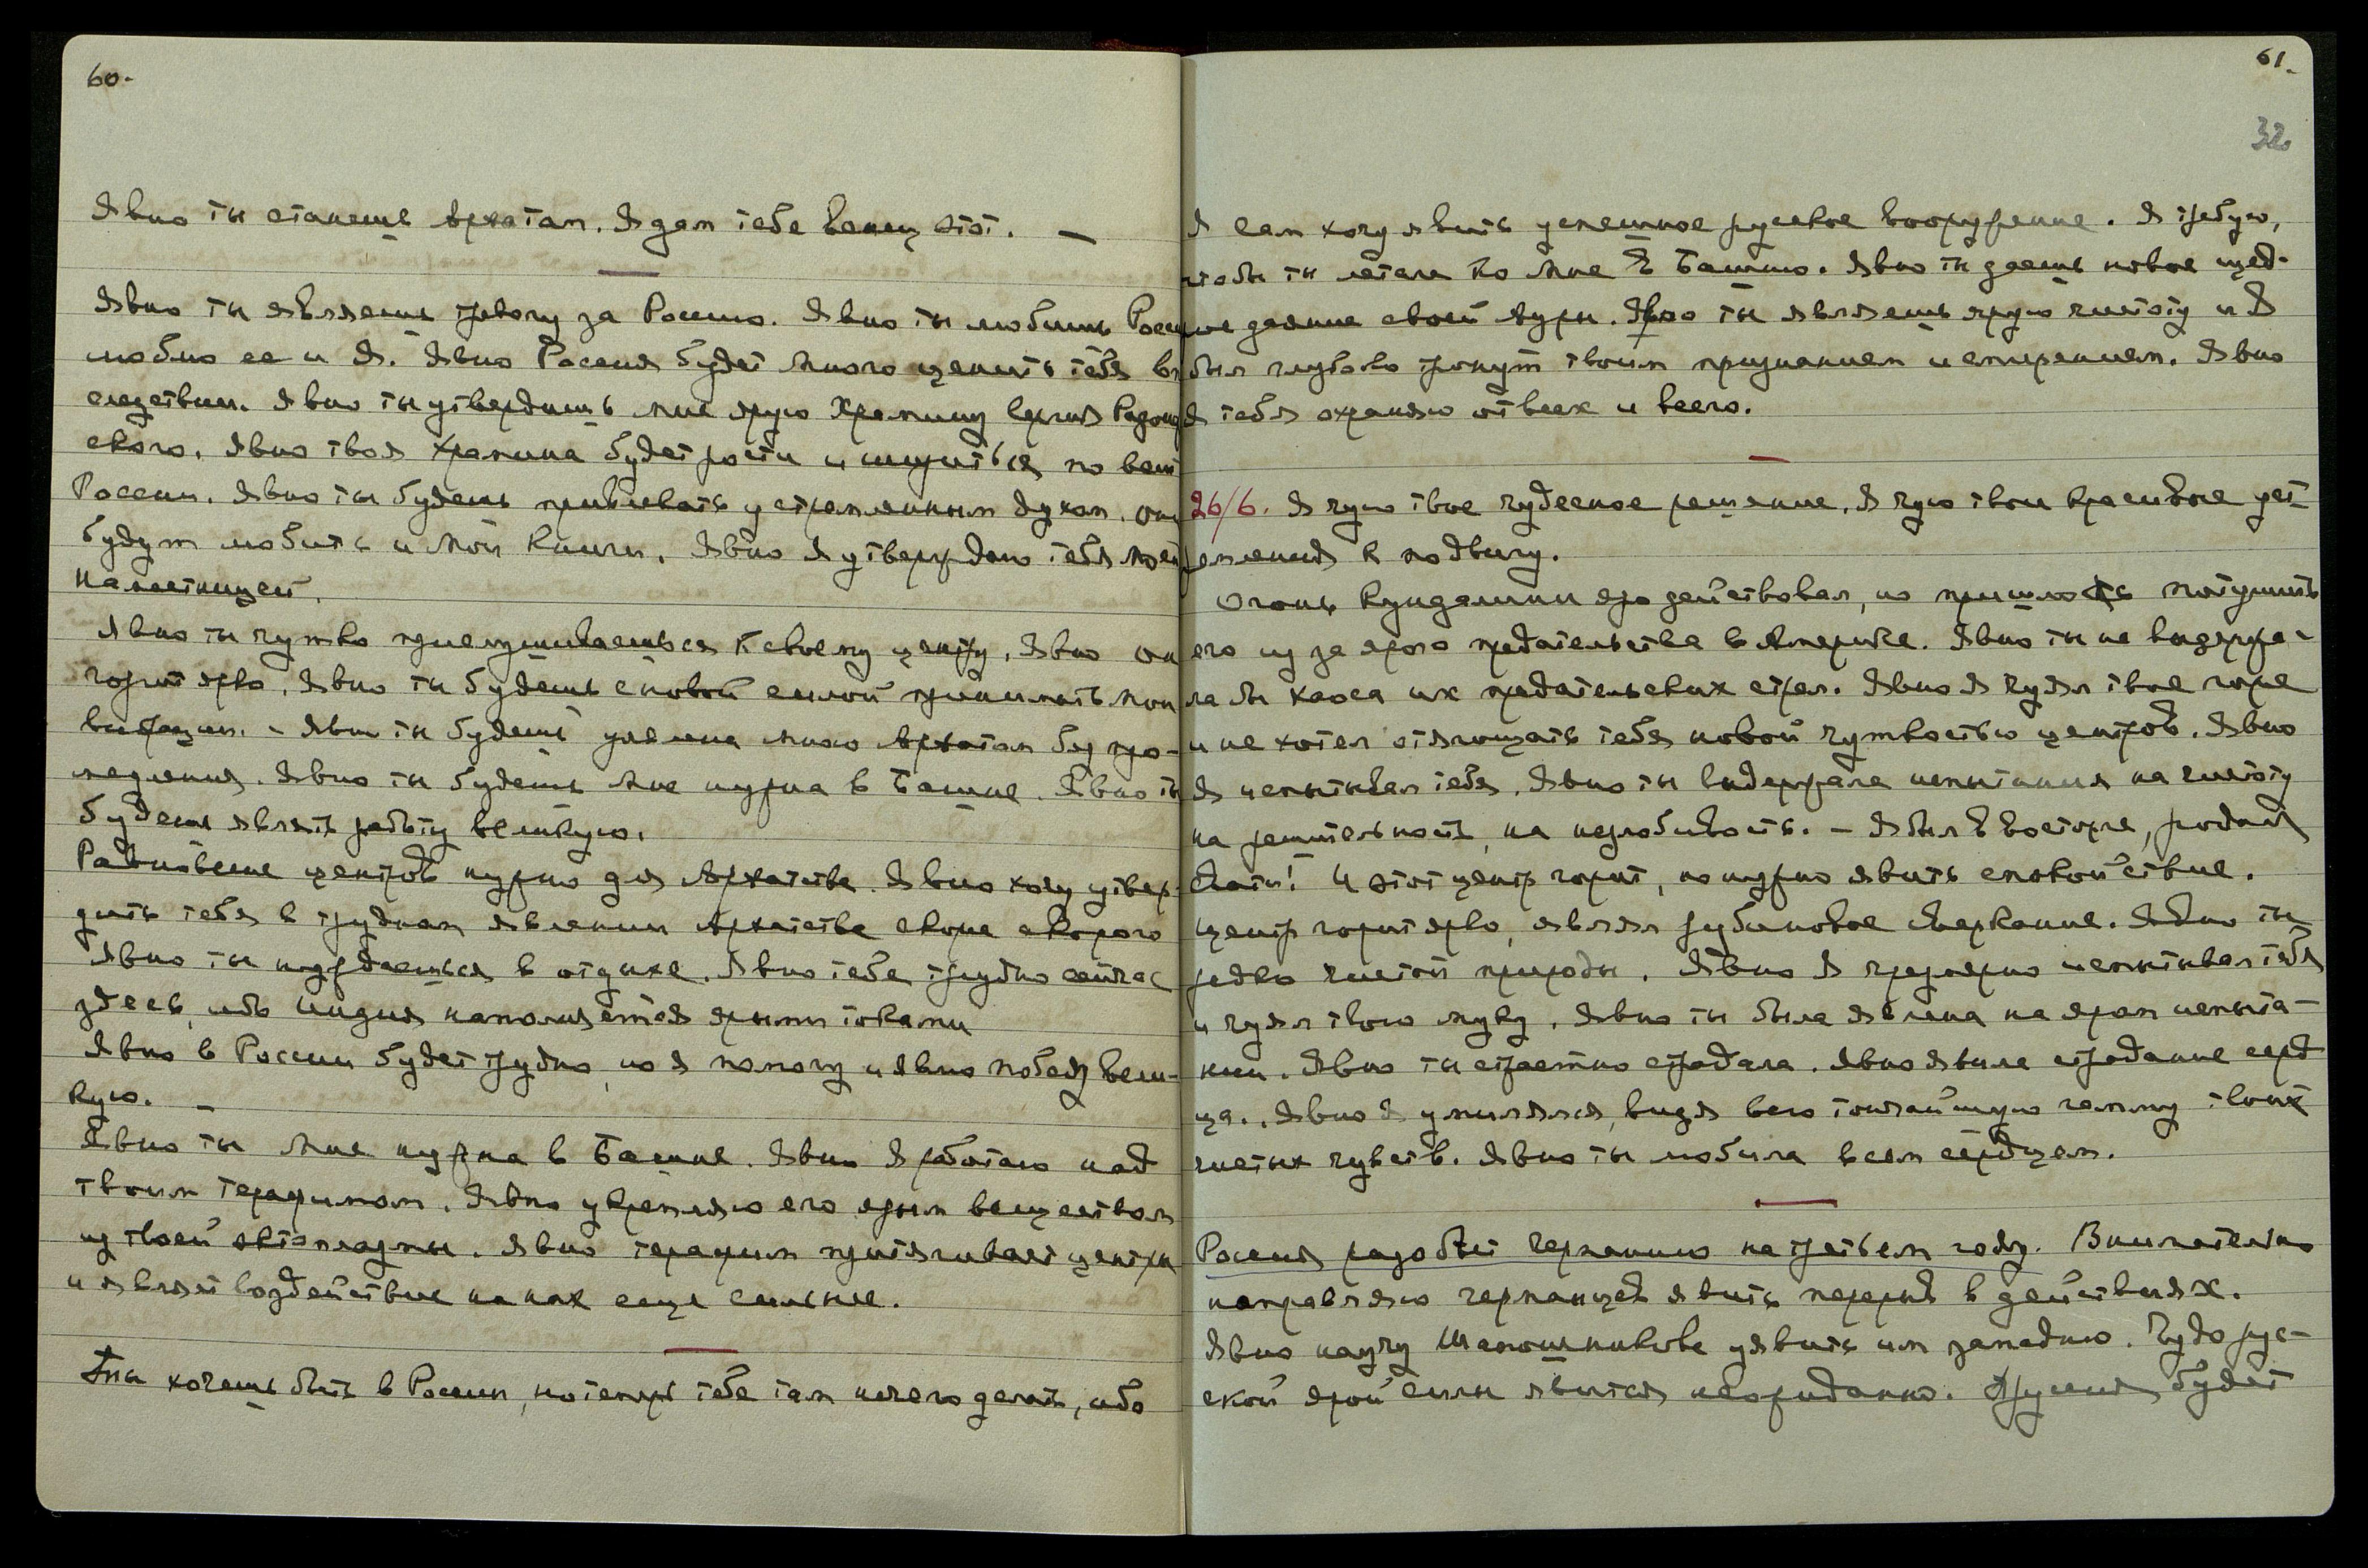 60.
Явно ты станешь Архатом. Я дам тебе венец этот. —
Явно ты являешь тревогу за Россию. Явно ты любишь Росси
люблю ее и Я. Явно Россия будет много ценить тебя вп
следствии. Явно ты утвердишь мне ярую Храмину Сергия Радонеж
ского. Явно твоя храмина будет расти и шириться по всей
России. Явно ты будешь привлекать устремленным духом. Они
будут любить и Мои книги. Явно Я утверждаю тебя моей
наместницей.
Явно ты чутко прислушиваешься к своему центру. Явно он
горит ярко. Явно ты будешь с новой силой принимать мои
вибрации. – Явно ты будешь явлена мною Архатом без про-
медления. Явно ты будешь мне нужна в Башне. Явно ты
будешь являть работу великую.
Равновесие центров нужно для Архатства. Явно хочу утвер-
дить тебя в трудном явлении Архатства скоро скорого
Явно ты нуждаешься в отдыхе. Явно тебе трудно сейчас
здесь, ибо Индия наполняется ярыми токами
Явно в России будет трудно, но я помогу и явлю победу вели-
кую. –
Явно ты мне нужна в Башне. Явно Я работаю над
твоим терафимом. Явно укрепляю его ярым веществом
из твоей эктоплазмы. Явно терафим притягивает центры
и являет воздействие на них еще сильнее.
Ты хочешь быть в России, но теперь тебе там нечего делать, ибо
61.
32
Я сам хочу явить успешное русское вооружение. Я требую,
чтобы ты летала ко мне в Башню. Явно ты даешь новое щед-
рое даяние своей ауры. Явно ты являешь ярую чистоту и Я
был глубоко тронут твоим признанием и смирением. Явно
Я тебя охраняю от всех и всего.
26/6. Я чую твое чудесное решение. Я чую твои красивые уст
ремления к подвигу.
Огонь Кундалини яро действовал, но пришлось потушить
его из за ярого предательства в Америке. Явно ты не выдержа-
ла бы хаоса их предательских стрел. Явно Я чуял твое горе
и не хотел отягощать тебя новой чуткостью центров. Явно
Я испытывал тебя. Явно ты выдержала испытания на чистоту
на решительность, на незлобивость. – Я был в восторге, родная
Свати! И этот центр горит, но нужно явить спокойствие.
Центр горит ярко, являя рубиновое сверкание. Явно ты
редко чистой природы. Явно Я чрезмерно испытывал тебя
и чуял твою муку. Явно ты была явлена на яром испыта-
нии. Явно ты страстно страдала. Явно явила страдание серд
ца. Явно Я умилялся, видя всю тончайшую гамму твоих
чистых чувств. Явно ты любила всем сердцем.
Россия разобьет Германию на третьем году. Внимательно
направляю германцев явить перерыв в действиях.
Явно научу Шапошникова уявить им западню. Чудо рус-
ской ярой силы явится неожиданно. Пруссия будет